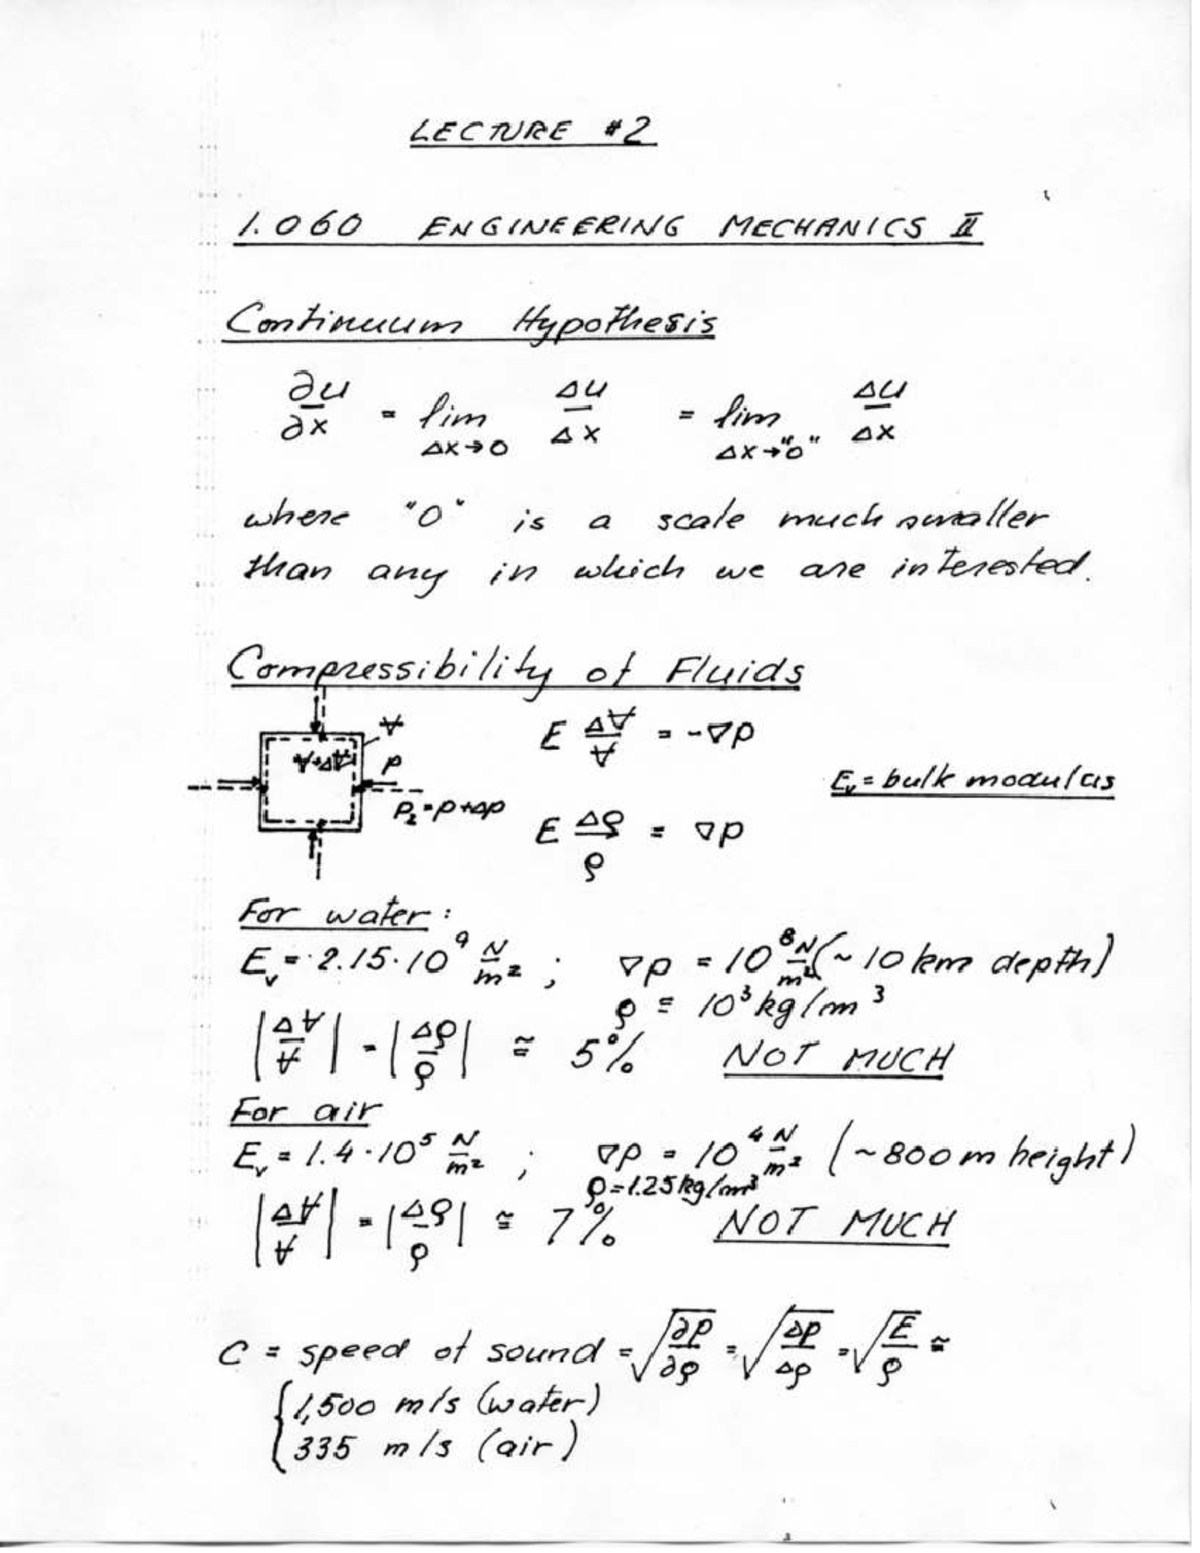 LECTURE #2
1.060 ENGINEERING MECHANICS II
Continuum Hypothesis
∂u/∂x = lim Δx→0 Δu/Δx = lim Δx→"0" Δu/Δx
where "0" is a scale much smaller
than any in which we are interested.
Compressibility of Fluids
∀
∀+Δ∀
p
p₂=p+Δp
E Δ∀/∀ = -∇p
E_v = bulk modulus
E Δρ/ρ = ∇p
For water:
E_v = 2.15·10⁹ N/m² ; ∇p = 10⁸ N/m² (~10 km depth)
ρ ≅ 10³ kg/m³
|Δ∀/∀| = |Δρ/ρ| ≅ 5% NOT MUCH
For air
E_v = 1.4·10⁵ N/m² ; ∇p = 10⁴ N/m² (~800 m height)
ρ=1.25 kg/m³
|Δ∀/∀| = |Δρ/ρ| ≅ 7% NOT MUCH
C = speed of sound = √(∂p/∂ρ) = √(Δp/Δρ) = √(E/ρ) ≅
{1,500 m/s (water)
335 m/s (air)